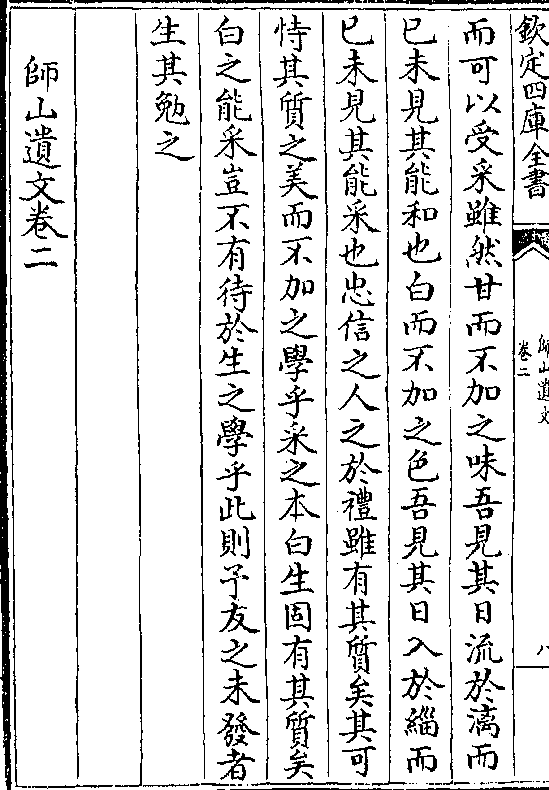 欽定四庫全書
師山遺文
卷二
八
而可以受采雖然甘而不加之味吾見其日流於漓而
已未見其能和也白而不加之色吾見其日入於緇而
已未見其能采也忠信之人之於禮雖有其質矣其可
恃其質之美而不加之學乎采之本白生固有其質矣
白之能采豈不有待於生之學乎此則予友之未發者
生其勉之
師山遺文卷二